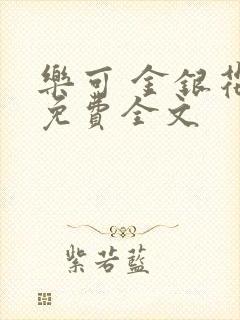 樂可 金銀花
免費全文
紫若藍